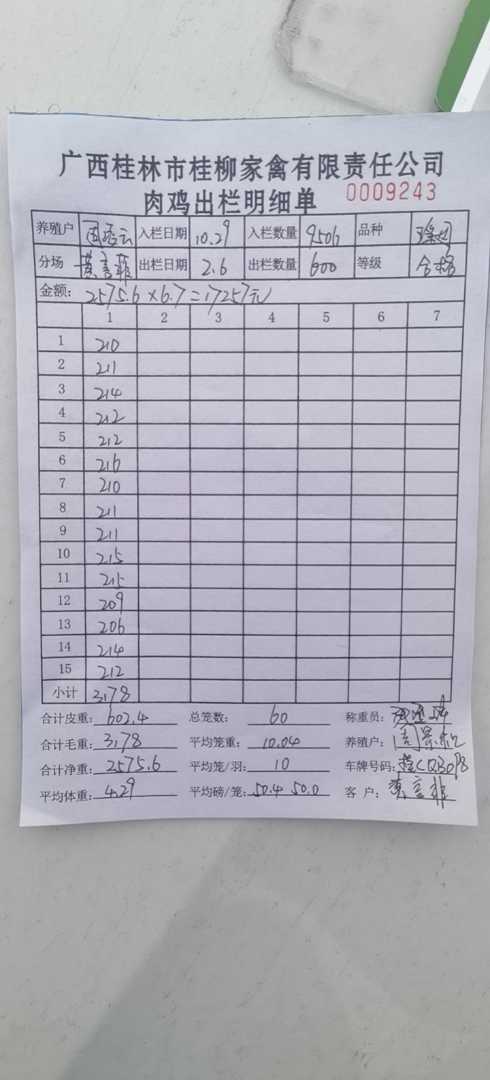 广西桂林市桂柳家禽有限责任公司
肉鸡出栏明细单 0009243
养殖户 入栏日期 10.29 入栏数量 9506 品种
分场 黄言菲 出栏日期 2.6 出栏数量 600 等级 合格
金额: 2575.6×6.7=17257元
1 2 3 4 5 6 7
1 210
2 211
3 214
4 212
5 212
6 216
7 210
8 211
9 211
10 215
11 215
12 209
13 206
14 214
15 212
小计 3178
合计皮重: 602.4 总笼数: 60 称重员:
合计毛重: 3178 平均笼重: 10.04 养殖户:
合计净重: 2575.6 平均笼/羽: 10 车牌号码:
平均体重: 4.29 平均磅/笼: 50.4 50.0 客 户: 黄言菲